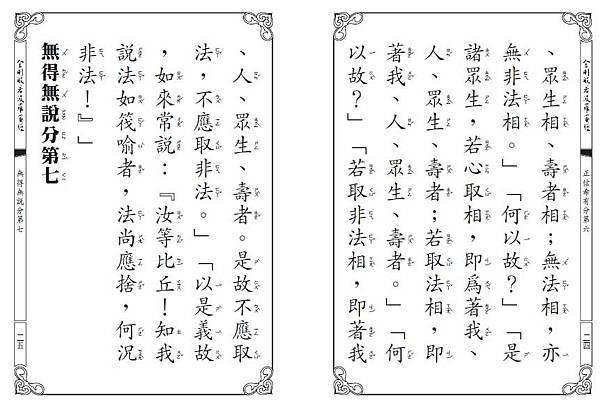 金剛般若波羅蜜經
正信希有分第六
二四
、眾生相、壽者相；無法相，亦
無非法相。」「何以故？」「是
諸眾生，若心取相，即為著我、
人、眾生、壽者；若取法相，即
著我、人、眾生、壽者。」「何
以故？」「若取非法相，即著我
、人、眾生、壽者。是故不應取
法，不應取非法。」「以是義故
，如來常說：『汝等比丘！知我
說法如筏喻者，法尚應捨，何況
非法！』」
無得無說分第七
金剛般若波羅蜜經
無得無說分第七
二五